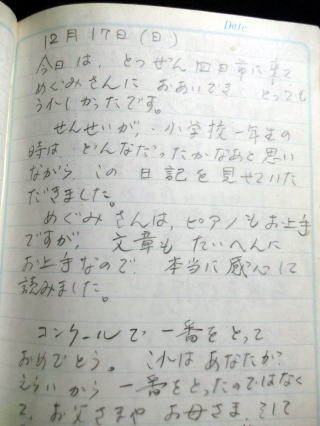 Date
12月17日(日)
今日は、とつぜん四日市に来て
めぐみさんに おあいでき とっても
うれしかったです。
せんせいが、小学校一年生の
時は どんなだったかなあと思い
ながら、この 日記を見せていた
だきました。
めぐみさんは、ピアノもお上手
ですが、文章も たいへんに
お上手なので、本当に感心して
読みました。
コンクールで 一番をとって
おめでとう。これは あなたが
えらいから 一番をとったのではなく
て、お父さまや お母さま、そして